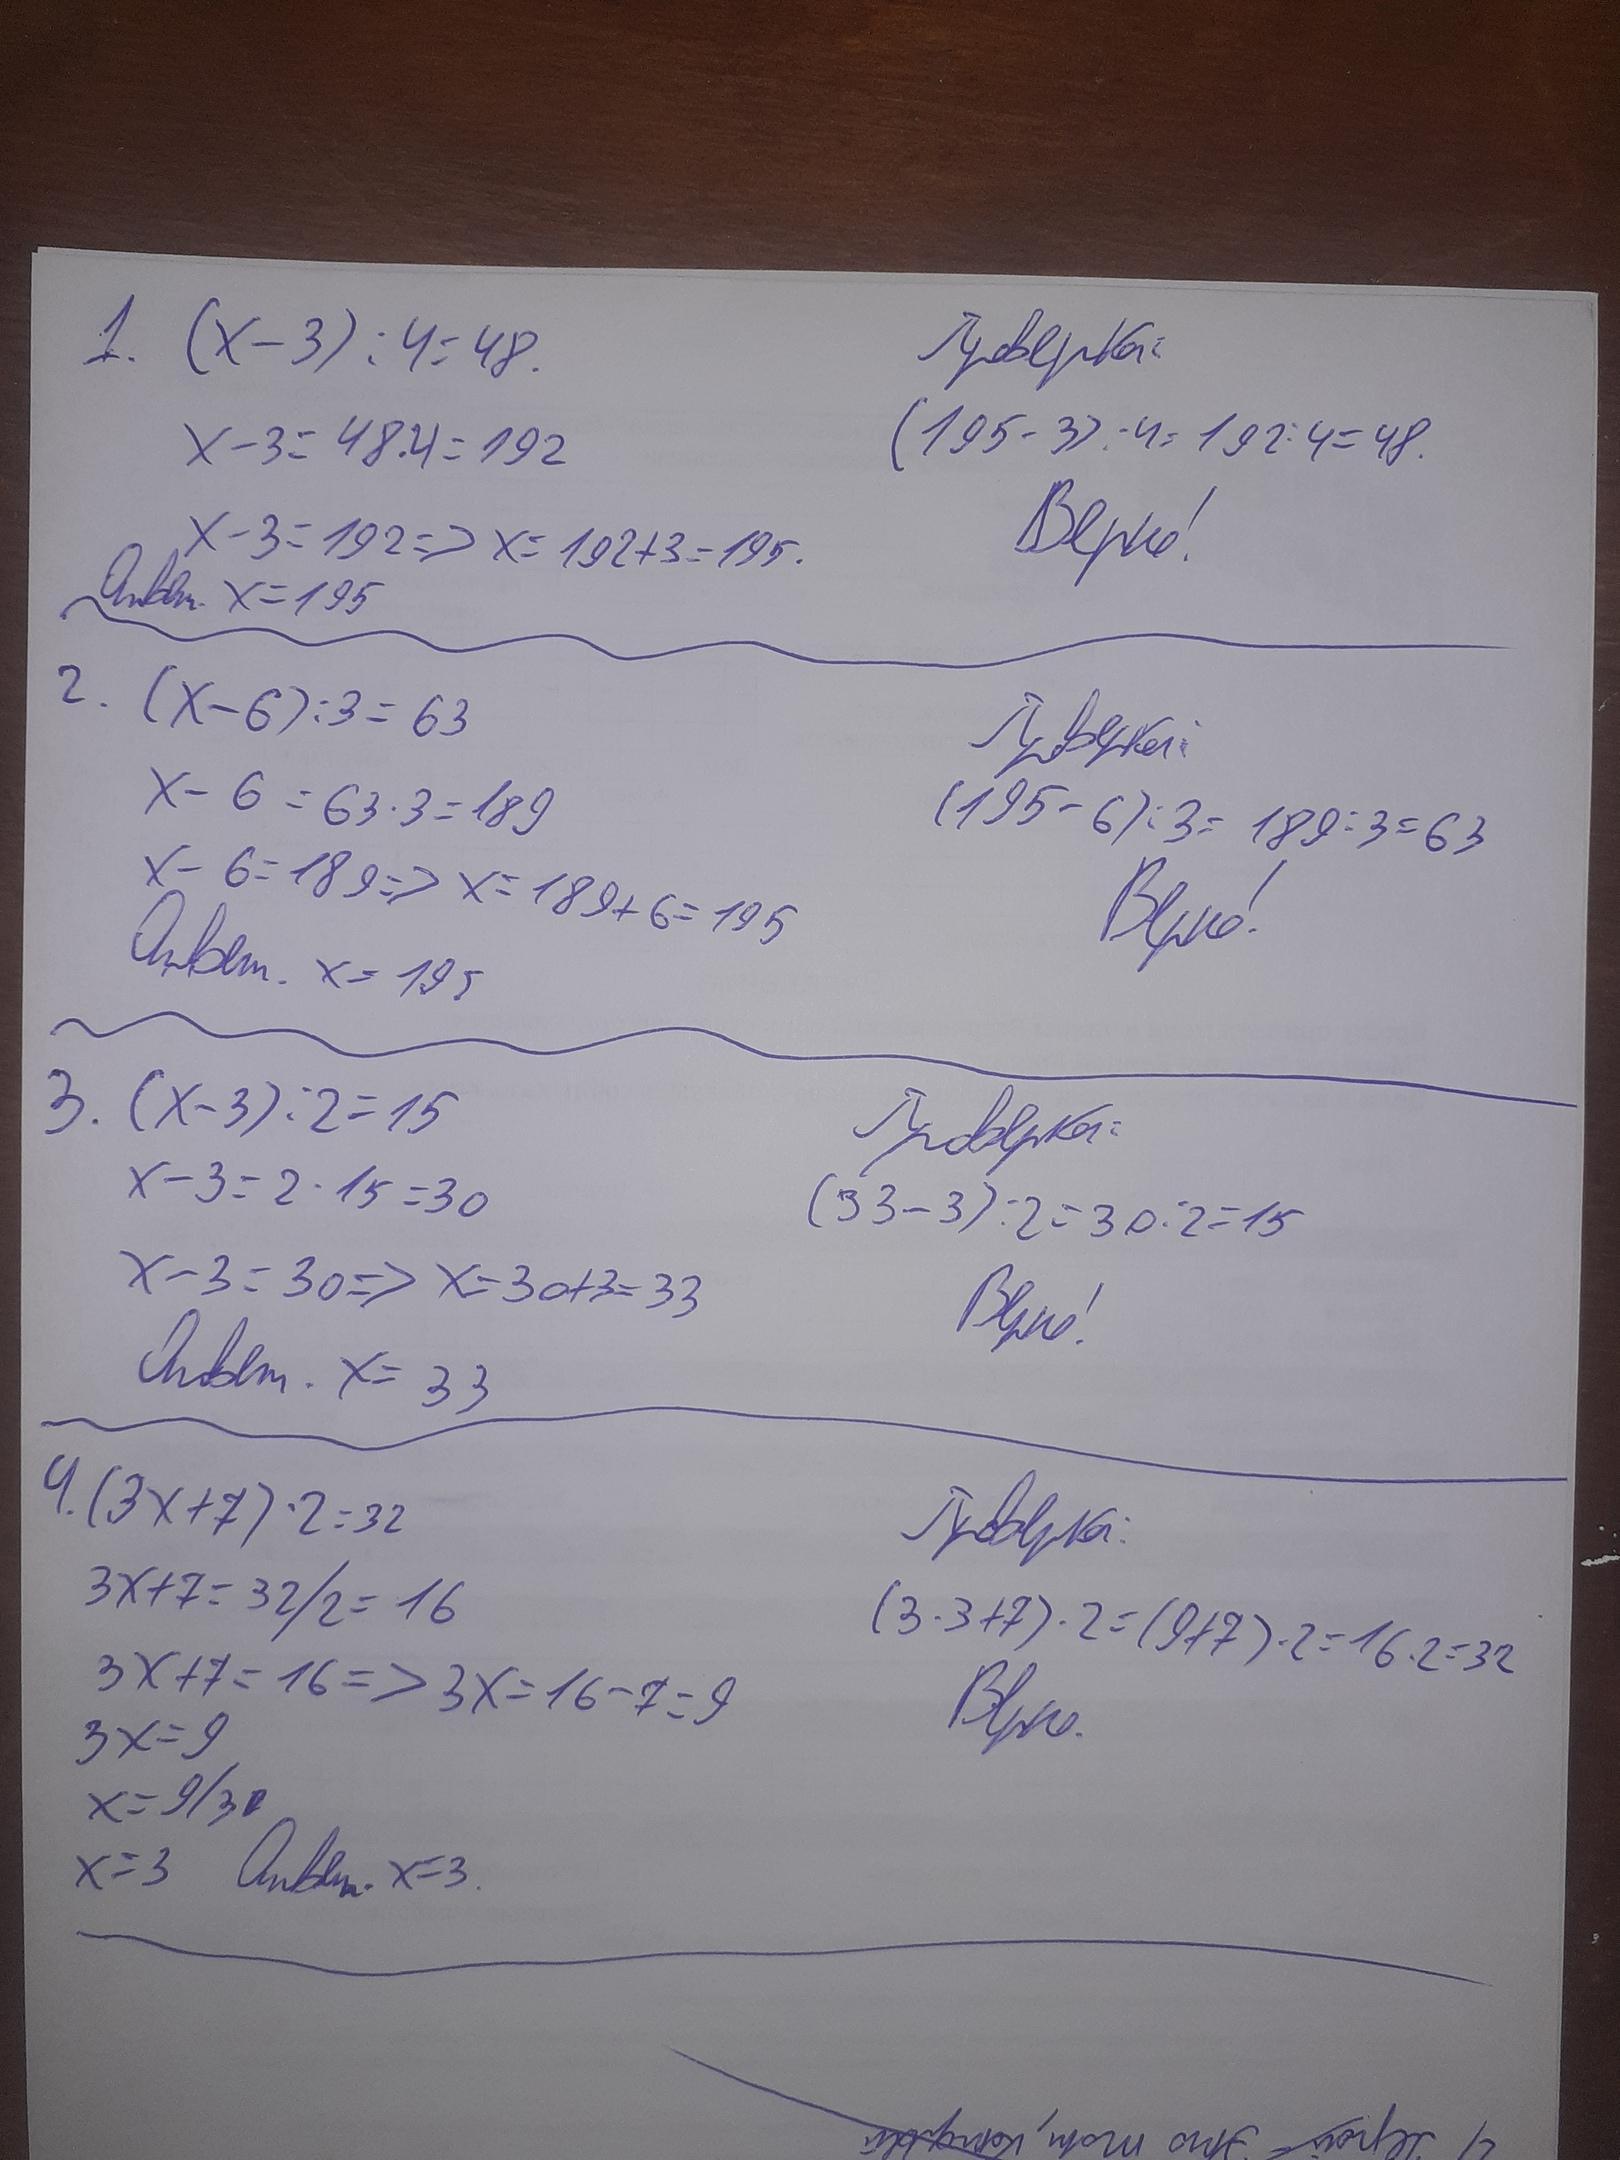 1. (x-3):4=48.
x-3=48·4=192
x-3=192=> x=192+3=195.
Ответ. x=195
Проверка:
(195-3):4=192:4=48.
Верно!
2. (x-6):3=63
x-6=63·3=189
x-6=189=> x=189+6=195
Ответ. x=195
Проверка:
(195-6):3=189:3=63
Верно!
3. (x-3):2=15
x-3=2·15=30
x-3=30=> x=30+3=33
Ответ. x=33
Проверка:
(33-3):2=30:2=15
Верно!
4. (3x+7)·2=32
3x+7=32/2=16
3x+7=16=>3x=16-7=9
3x=9
x=9/3
x=3 Ответ. x=3.
Проверка:
(3·3+7)·2=(9+7)·2=16·2=32
Верно.
Это тот, который